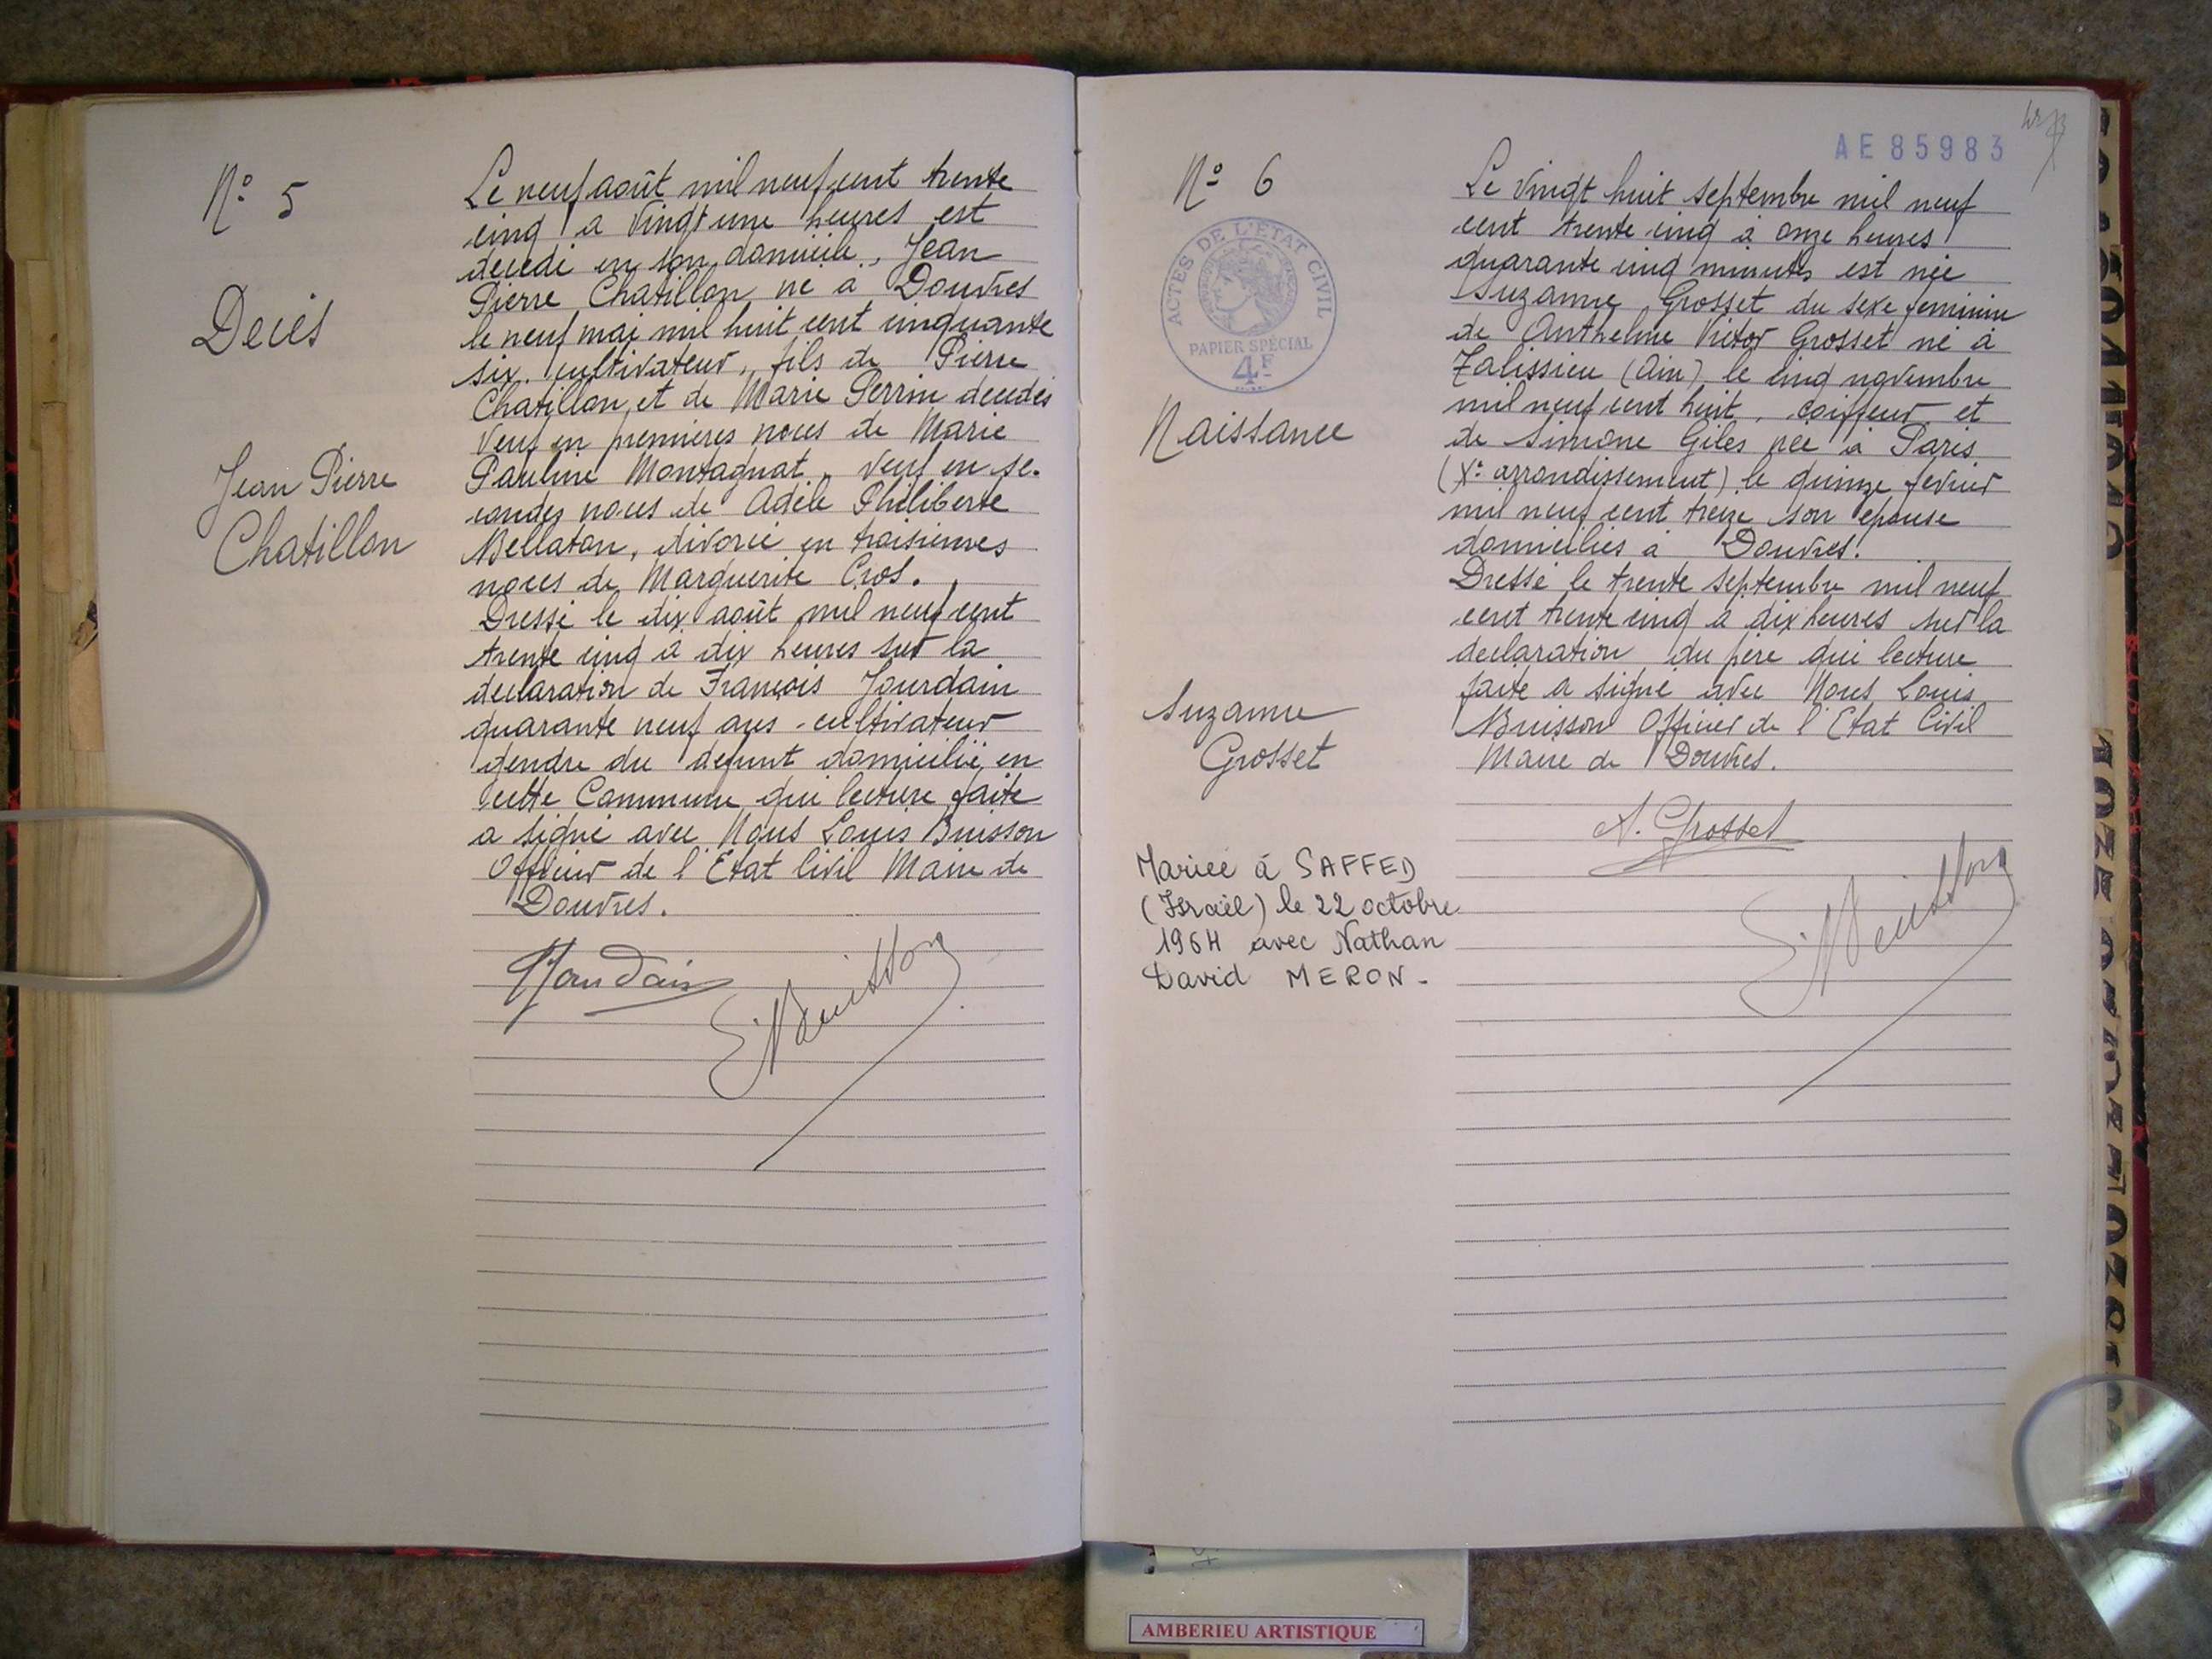 N° 5
Décès
Jean Pierre
Chatillon
Le neuf août mil neuf cent trente
cinq à vingt une heures est
décédé en son domicile, Jean
Pierre Chatillon né à Douvres
le neuf mai mil huit cent cinquante
six. cultivateur, fils de Pierre
Chatillon et de Marie Perrin décédés
Veuf en premières noces de Marie
Pauline Montagnat, veuf en se-
condes noces de Adèle Philiberte
Bellaton, divorcé en troisièmes
noces de Marguerite Cros.
Dressé le dix août mil neuf cent
trente cinq à dix heures sur la
déclaration de François Jourdain
quarante neuf ans - cultivateur
gendre du défunt domicilié en
cette Commune, qui lecture faite
a signé avec Nous Louis Buisson
Officier de l'Etat Civil Maire de
Douvres.
Jourdain
Buisson
AE 85983
N° 6
ACTES DE L'ETAT CIVIL
PAPIER SPÉCIAL
4F
Naissance
Suzanne
Grosset
Mariée à SAFFED
(Israël) le 22 octobre
1964 avec Nathan
David MERON.
Le vingt huit septembre mil neuf
cent trente cinq à onze heures
quarante cinq minutes est née
Suzanne Grosset du sexe féminin
de Anthelme Victor Grosset né à
Talissieu (Ain) le cinq novembre
mil neuf cent huit, coiffeur et
de Simone Giles née à Paris
(X° arrondissement) le quinze février
mil neuf cent treize son épouse
domiciliés à Douvres.
Dressé le trente septembre mil neuf
cent trente cinq à dix heures sur la
déclaration du père qui lecture
faite a signé avec Nous Louis
Buisson Officier de l'Etat Civil
Maire de Douvres.
A. Grosset
Buisson
AMBERIEU ARTISTIQUE